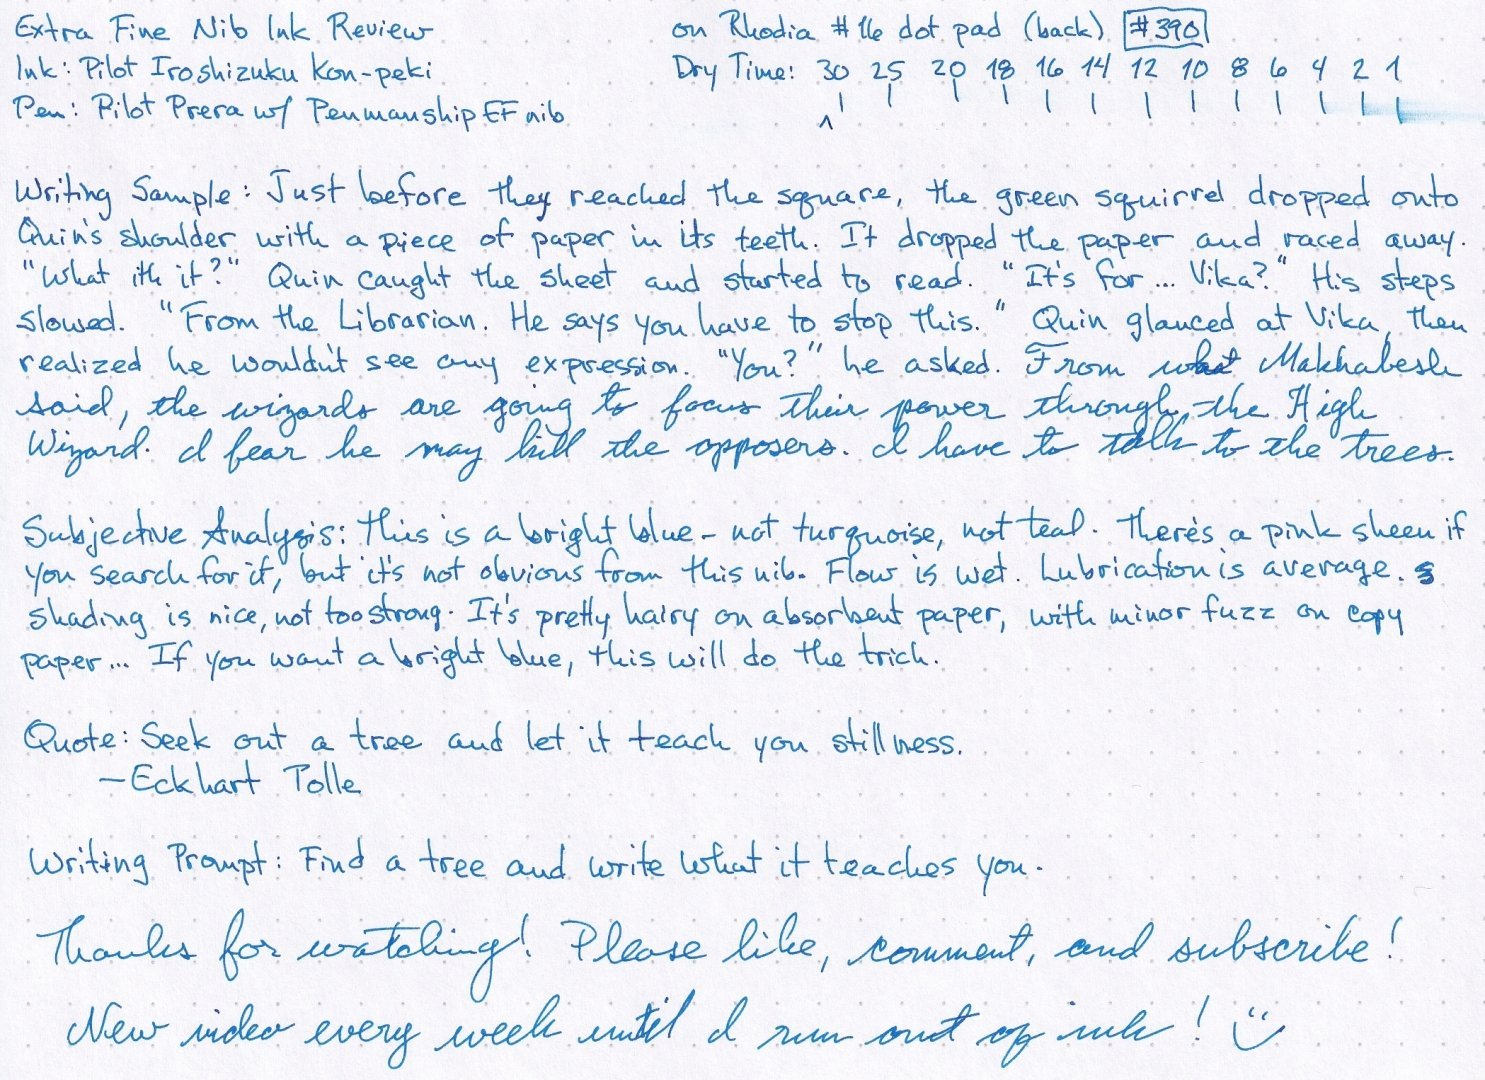 Extra Fine Nib Ink Review
on Rhodia #16 dot pad (back) #390
Ink: Pilot Iroshizuku Kon-peki
Dry Time: 30 25 20 18 16 14 12 10 8 6 4 2 1
Pen: Pilot Prera w/ Penmanship EF nib
^
Writing Sample: Just before they reached the square, the green squirrel dropped onto
Quin's shoulder with a piece of paper in its teeth. It dropped the paper and raced away.
"What ith it?" Quin caught the sheet and started to read. "It's for... Vika?" His steps
slowed. "From the Librarian. He says you have to stop this." Quin glanced at Vika, then
realized he wouldn't see any expression. "You?" he asked. From what Makhabesh
said, the wizards are going to focus their power through the High
Wizard. I fear he may kill the opposers. I have to talk to the trees.
Subjective Analysis: This is a bright blue - not turquoise, not teal. There's a pink sheen if
you search for it, but it's not obvious from this nib. Flow is wet. Lubrication is average. s
shading is nice, not too strong. It's pretty hairy on absorbent paper, with minor fuzz on copy
paper... If you want a bright blue, this will do the trick.
Quote: Seek out a tree and let it teach you stillness.
—Eckhart Tolle
Writing Prompt: Find a tree and write what it teaches you.
Thanks for watching! Please like, comment, and subscribe!
New video every week until I run out of ink! :)